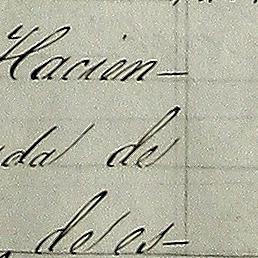 Hacien-
da de
de es-